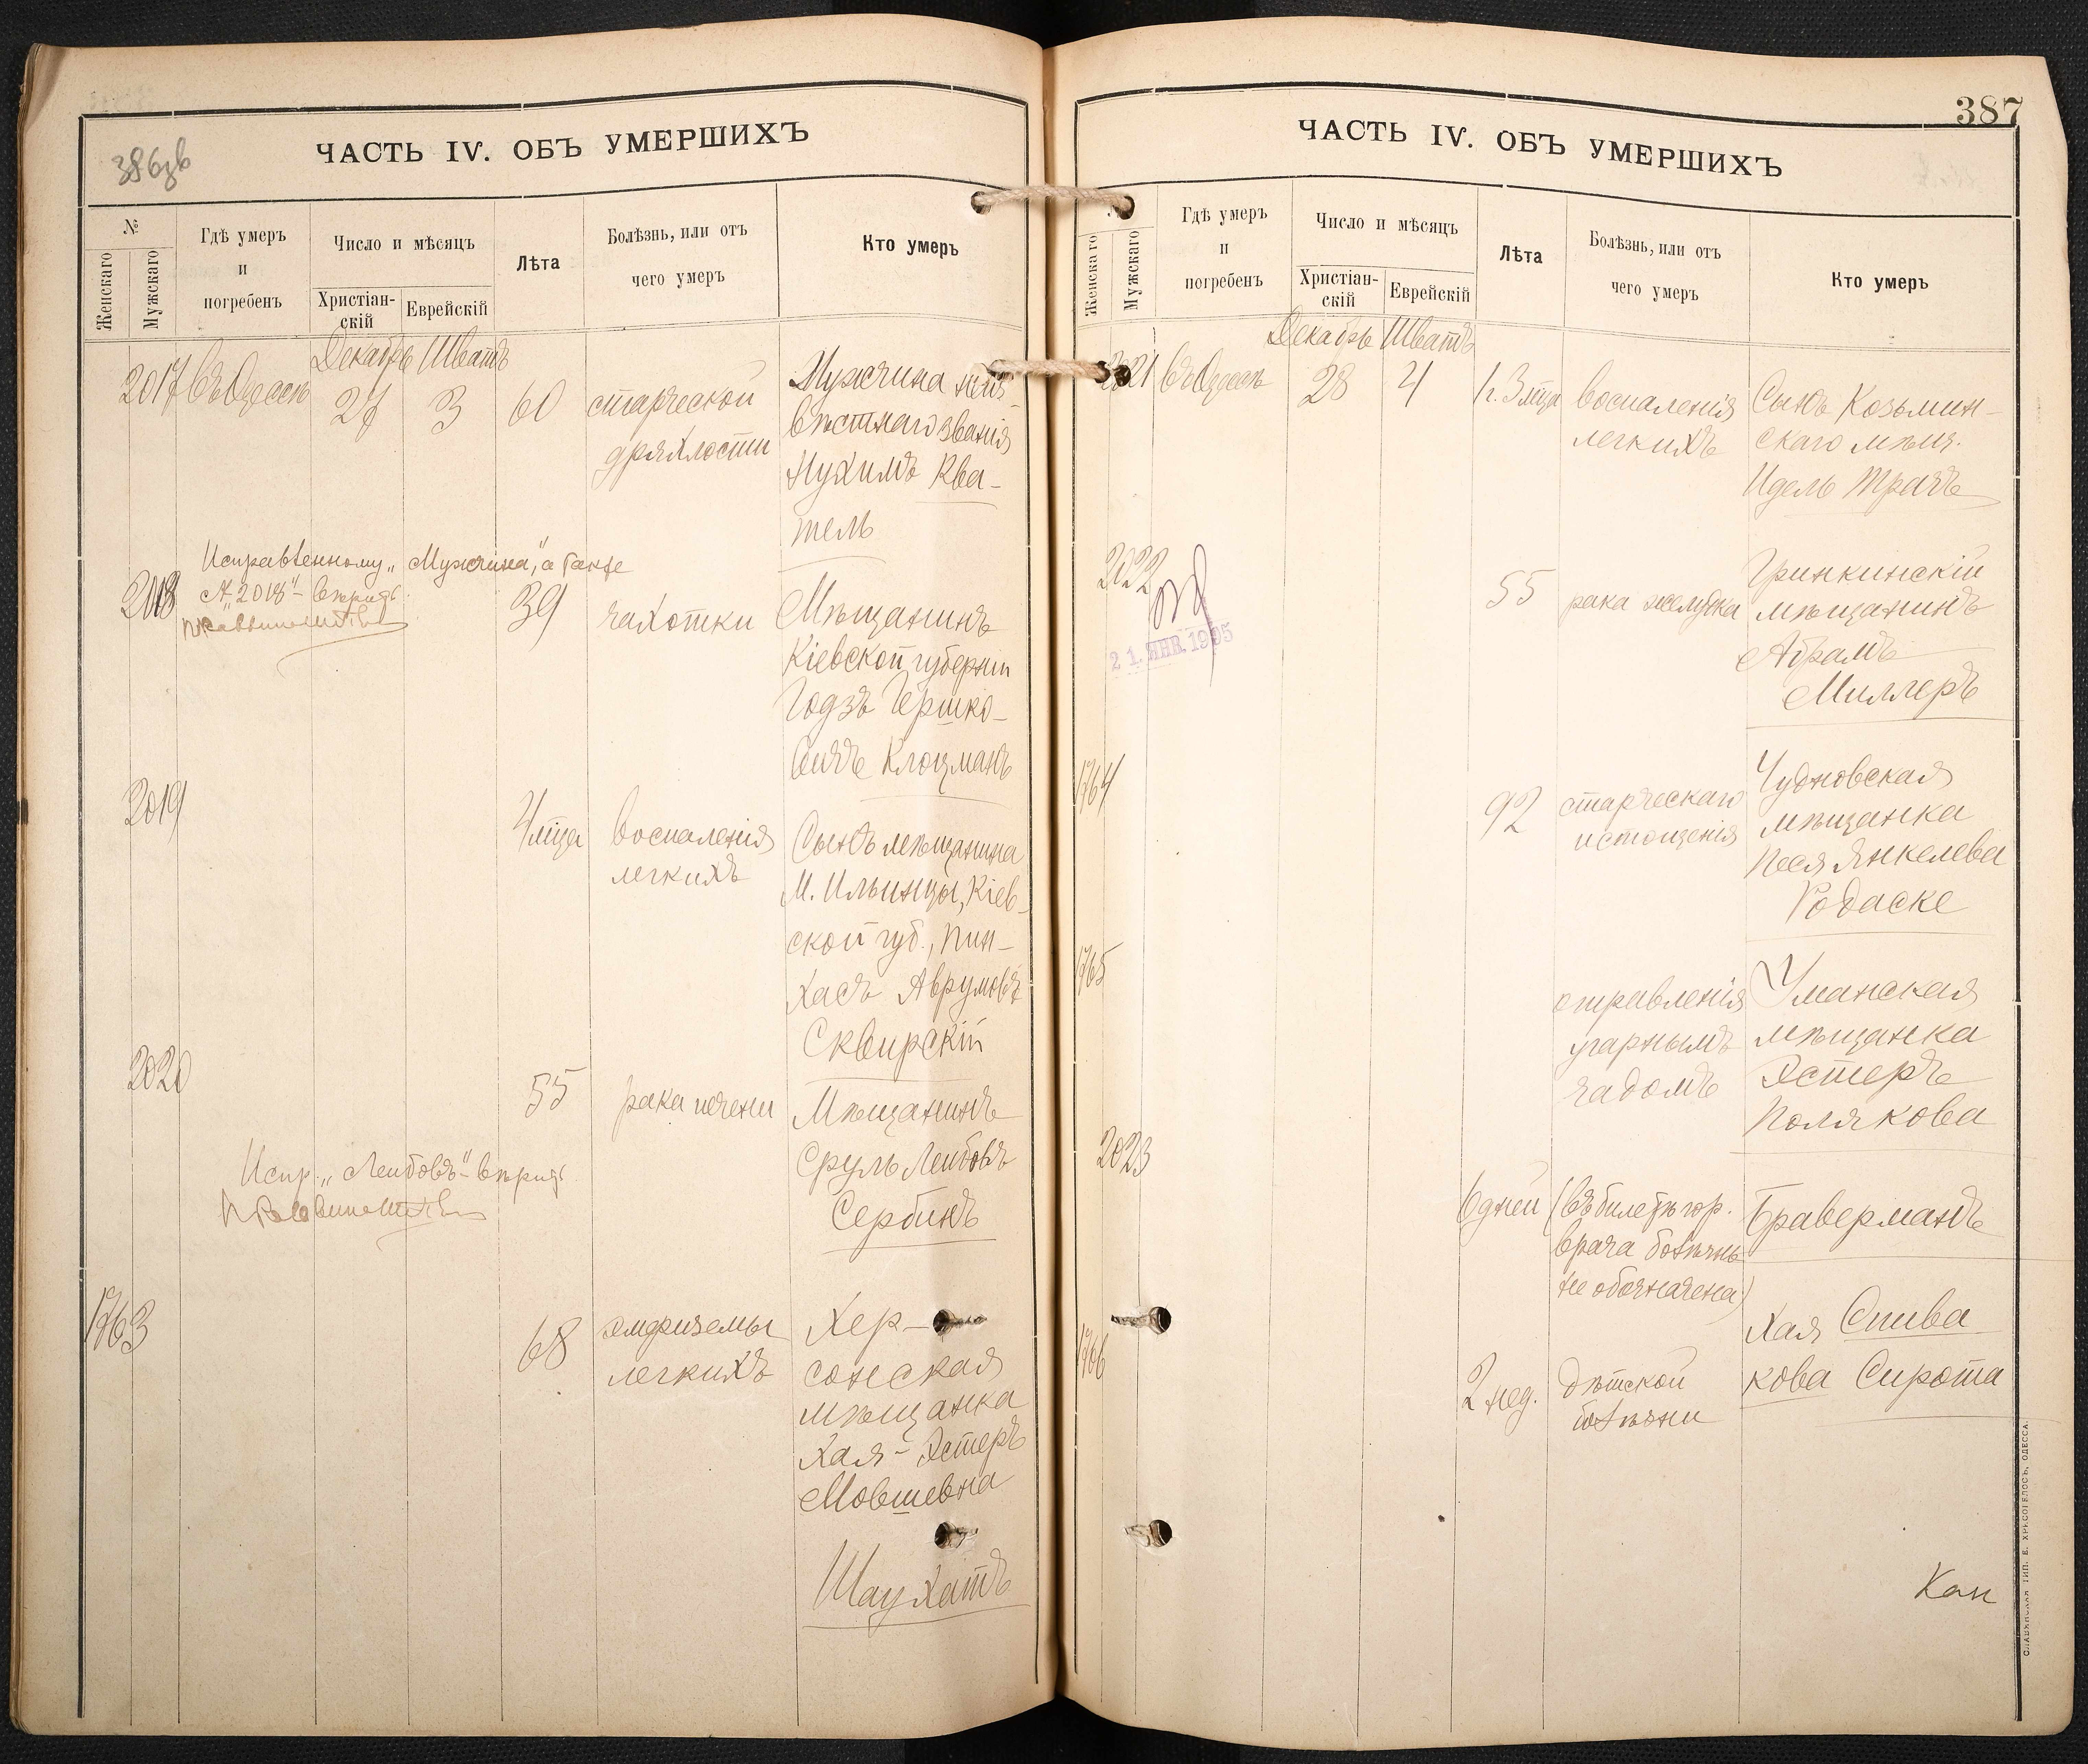 386зв
ЧАСТЬ IV. ОБЪ УМЕРШИХЪ
№
Женскаго
Мужскаго
Гдѣ умеръ
и
погребенъ
Число и мѣсяцъ
Христіан-
скій
Еврейскій
Лѣта
Болѣзнь, или отъ
чего умеръ
Кто умеръ
Декабрь Шватъ
2017 Въ Одессѣ 27 3 60 старческой
дряхлости
Мужчина неиз-
вѣстнаго званія
Нухимъ Ква-
тель
Исправленному „Мужчина", а также
„2018" - вѣрить.
2018 39 чахотки
Мѣщанинъ
Кіевской губерніи
Годзь Гершко-
вичъ Клоцманъ
2019 4 м-ца воспаленія
легкихъ
Сынъ мѣщанина
м. Ильинцы, Кіев-
ской губ., Пин-
хасъ Аврумовъ
Сквирскій
2020 55 рака печени
Мѣщанинъ
Сруль Лейбовъ
Сербинъ
Испр. „Лейбовъ" - вѣрить
1763 68 эмфиземы
легкихъ
Хер-
сонская
мѣщанка
Хая-Эстеръ
Мовшевна
Шаухатъ
387
ЧАСТЬ IV. ОБЪ УМЕРШИХЪ
Женскаго
Мужскаго
Гдѣ умеръ
и
погребенъ
Число и мѣсяцъ
Христіан-
скій
Еврейскій
Лѣта
Болѣзнь, или отъ
чего умеръ
Кто умеръ
Декабрь Шватъ
2021 Въ Одессѣ 28 4 1г. 3 м-ца воспаленія
легкихъ
Сынъ Козьмин-
скаго мѣщ.
Идель Трачъ
2022 55 рака желудка
21. ЯНВ. 1905
Гринкинскій
мѣщанинъ
Абрамъ
Миллеръ
1764 92 старческаго
истощенія
Чудновская
мѣщанка
Песя Янкелева
Родаске
1765 отравленія
угарнымъ
чадомъ
Уманская
мѣщанка
Эстеръ
Полякова
2023 6 дней (въ билетѣ гор.
врача болѣзнь
не обозначена)
Браверманъ
1766 2 нед. дѣтской
болѣзни
Хая Спива
кова Сирота
Кан
СЛАВЯНСКАЯ ТИП. Е. ХРИСОГЕЛОСЪ, ОДЕССА.